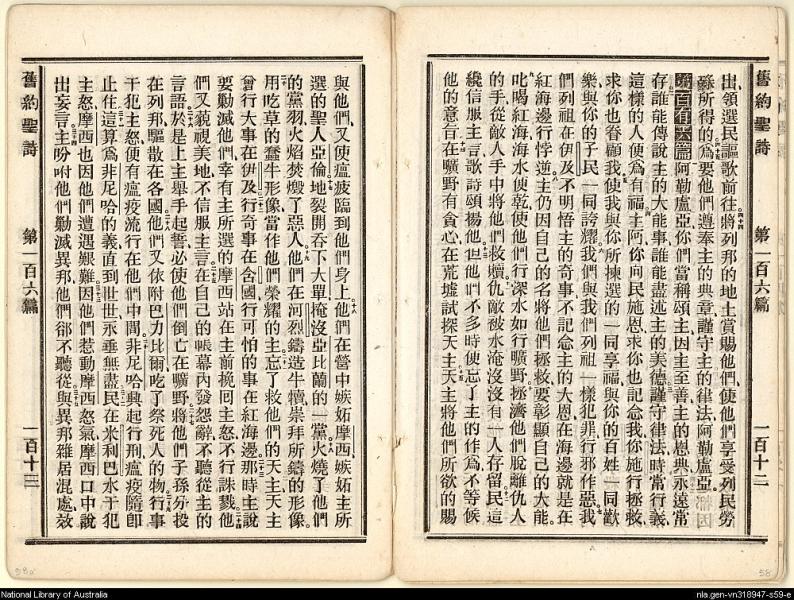 舊約聖詩 第一百六篇 一百十二
出、領選民謳歌前往、將列邦的地土賞賜他們、使他們享受列民勞
穌所得的、爲要他們遵奉主的典章、謹守主的律法、阿勒盧亞、
第一百有六篇 阿勒盧亞、你們當稱頌主、因主至善、主的恩典永遠常
存、誰能傳說主的大能事、誰能盡述主的美德、謹守律法、時常行義、
這樣的人便爲有福、主阿、你向民施恩、求你也記念我、你施行拯救、
求你也眷顧我、使我與你所揀選的一同享福、與你的百姓一同歡
樂、與你的子民一同誇耀、我們與我們列祖一樣犯罪、行邪作惡、我
們列祖在伊及不明悟主的奇事、不記念主的大恩、在海邊就是在
紅海邊行悖逆、主仍因自己的名、將他們拯救、要彰顯自己的大能、
叱喝紅海、海水便乾、使他們行深水如行曠野、拯濟他們脫離仇人
的手、從敵人手中將他們救贖、仇敵被水淹沒、沒有一人存留、民這
纔信服主言、歌詩頌揚他、但他們不多時便忘了主的作爲、不等候
他的意旨、在曠野有貪心、在荒墟試探天主、天主將他們所欲的賜
與他們、又使瘟疫臨到他們身上、他們在營中嫉妬摩西、嫉妬主所
選的聖人亞倫、地裂開吞下大單、掩沒亞比蘭的一黨、火燒了他們
的黨羽、火焰焚燬了惡人、他們在河烈鑄造牛犢、崇拜所鑄的形像、
用吃草的蠢牛形像、當作他們榮耀的主、忘了救他們的天主、天主
曾行大事在伊及、行奇事在含國、行可怕的事在紅海邊、那時主說
要勦滅他們、幸有主所選的摩西站在主前、挽回主怒、不行誅戮、他
們又藐視美地、不信服主言、在自己的帳幕內發怨辭、不聽從主的
言語、於是上主舉手起誓、必使他們倒亡在曠野、將他們子孫分投
在列邦、驅散在各國、他們又依附巴力比爾、吃了祭死人的物、行事
干犯主怒、便有瘟疫流行在他們中間、非尼哈興起行刑、瘟疫隨卽
止住、這算爲非尼哈的義、直到世世永垂無盡、民在米利巴水干犯
主怒、摩西也因他們遭遇艱難、因他們惹動摩西怒氣、摩西口中說
出妄言、主吩咐他們勦滅異邦、他們卻不聽從、與異邦雜居混處、效
舊約聖詩 第一百六篇 一百十三
59a
58
National Library of Australia
nla.gen-vn318947-s59-e